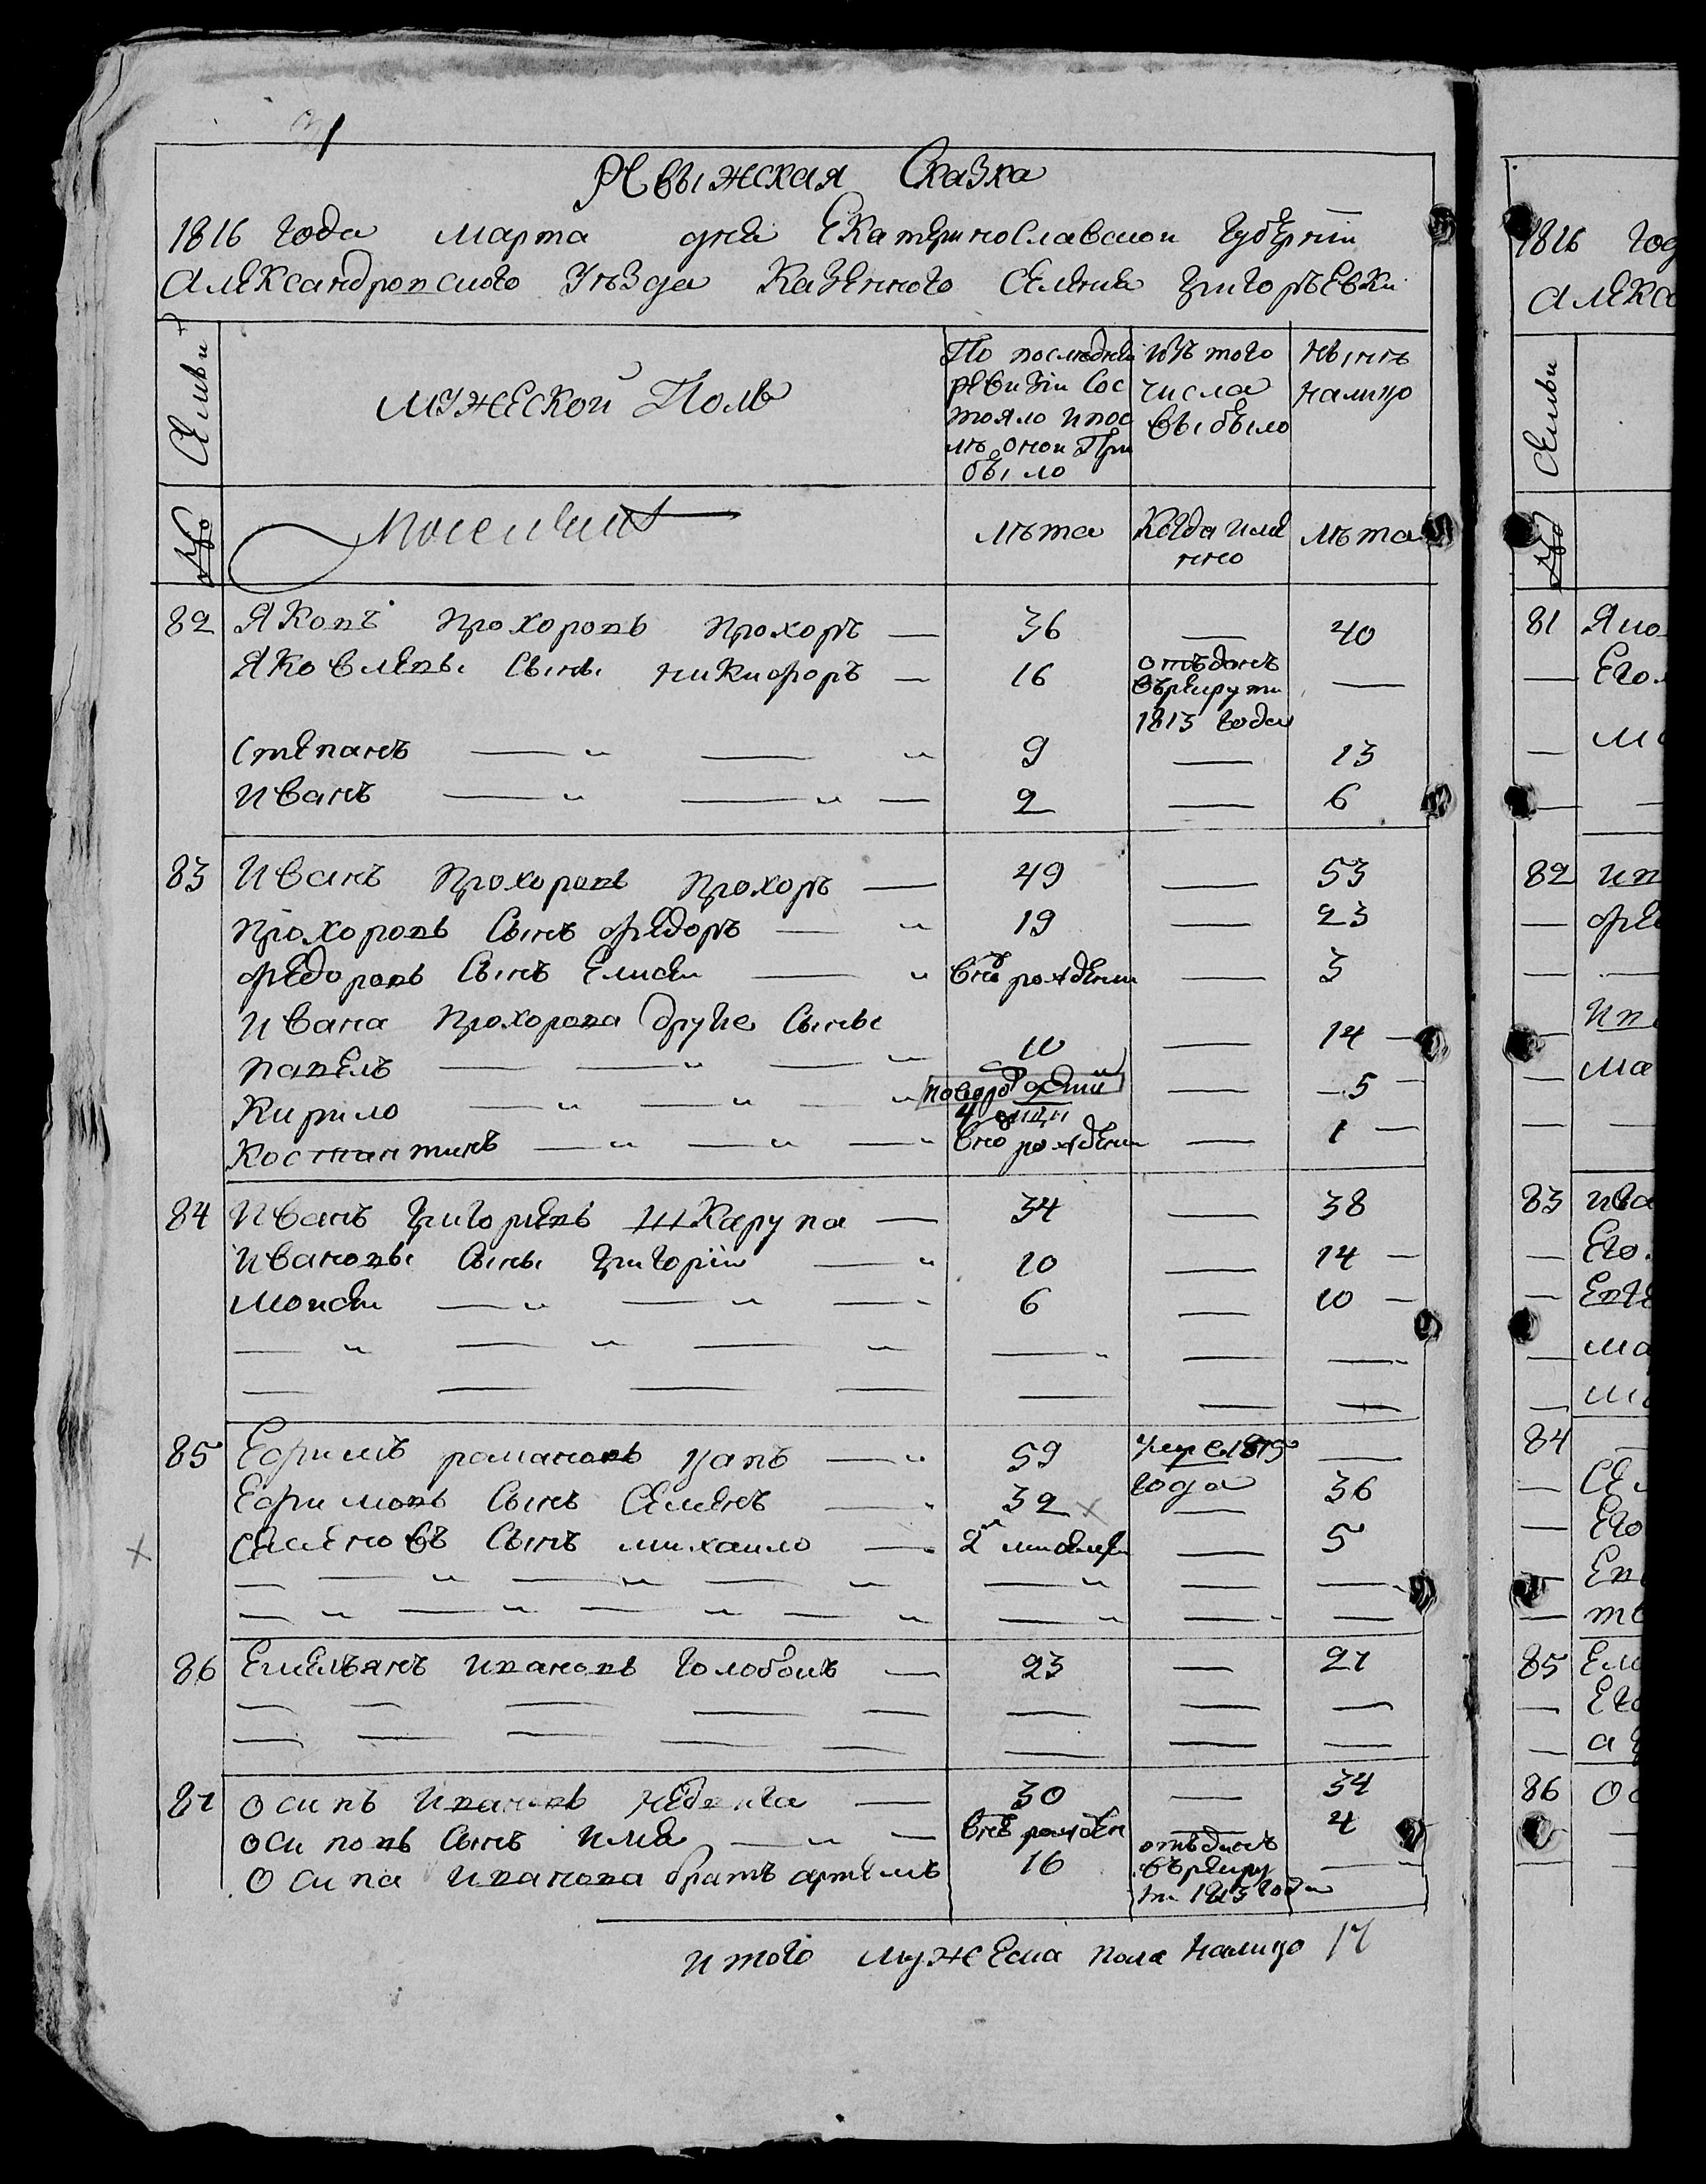 Ревыжская Сказка
1816 года марта дня Екатеринославскои Губернiи
Александровского Уезда Казенного Селения Григорьевки
Семьи
мужескои Полъ
По последнеи
ревизiи Сос
тояло и пос
ле онои При
было
изъ того
числа
выбыло
ныне
налицо
№
лета
Когда имя
нно
лета
82 Яковъ Прохоровъ Прохоръ — 36 — 40
Яковлевы Сыны никифоръ — 16 отъданъ въ рекруты 1813 года —
степанъ — " — " 9 — 13
иванъ — " — " — 2 — 6
83 Иванъ Прохоровъ Прохоръ — 49 — 53
Прохоровъ Сынъ федоръ — " 19 — 23
федоровъ Сынъ Елисеи — " внов рождении — 3
Ивана Прохорова другие Сыны
павелъ — " — " 10 — 14 —
Кирило — " — " — " — 5 —
Костантинъ — " — " — " внов рождении — 1 —
84 Иванъ Григориевъ Шкарупа — 34 — 38
Ивановы Сыны Григорiи — " 10 — 14 —
Моисеи — " — " — " 6 — 10 —
85 Ефимъ романовъ Цапъ — " 59 умре 1815 года —
Ефимовъ Сынъ Семенъ — " 32 — 36
Семеновъ Сынъ михаило — — 5
86 Емельянъ ивановъ голобокъ — 23 — 27
87 осипъ Ивановъ — 30 — 34
осиповъ Сынъ илья — " — внов рожден — 4
Осипа иванова братъ артемъ 16 отъданъ въ рекруты 1813 года —
итого мужеска пола налицо 17
1816 год
Алекса
Семьи
№
81 Яко
Его
82 ив
фе
83 ива
Его
84
Се
Его
85 Еме
Его
86 Ос